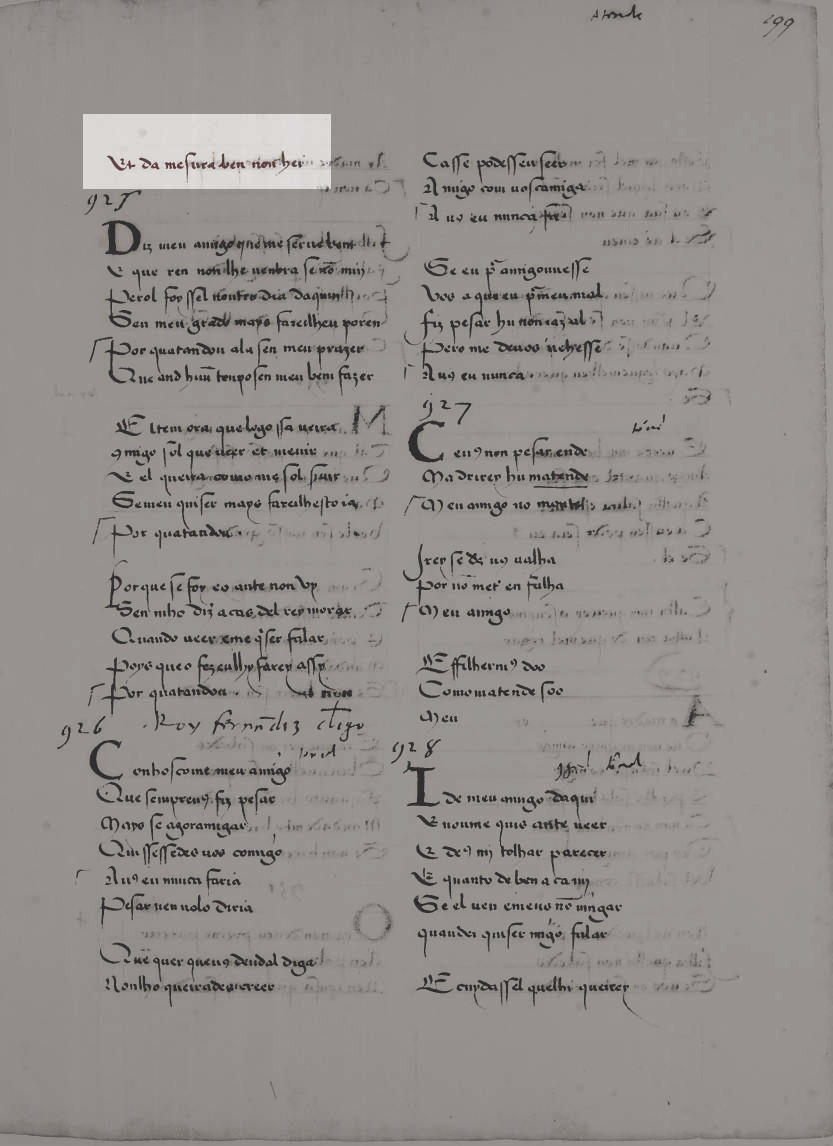 199
Et da mesura ben non hei
925
Diz meu amigo que me serue ben
E que ren non lhe nenbra se nõ min
Perol foyssel noutro dia daquen
Sen meu grado mays fareilheu poren
Por quatandou ala sen meu prazer
Que and huũ tenpo sen meu ben fazer
El tem ora que logo ssa ueira
9migo
E el queira como me sol
Semeu quiser mays fareilhesto ia
Por quatandou
Porque se foy eo ante non ui
Sen mho diz acas del rey morar
Quando ueer xeme q̃ser falar
Poys que o fez eulhy farey assy
Por quatandou
926
Roy fernãdiz
Conhoscome meu amigo
Que senpreu9 fiz pesar
Mays se agoramigar
Quissessedes uos comigo
Au9 eu nunca faria
Pesar nen uolo diria
Que quer queu9 deudal diga
Nonlho queirades creer
Casse podesseu seer
Amigo com uoscamiga
A uos eu nunca
Se eu p amigouuesse
Vos a que eu meu mal
Fiz pesar hu non iaz al
Pero me deuos uehesse
Au9 eu nunca
927
Ceu9 non pesar ende
Madrirey hu matende
Meu amigo
Irey se de9 uo9 ualha
Por nõ met en falha
Meu amigo
Effilhermi9 doo
Como matende soo
Meu
928
I de meu amigo daqui
E nonme quis ante ueer
E de9 mj tolhar parecer
E quanto de ben a ca mj
Se el uen emeu9 nõ uingar
quandel quiser migo falar
E cuydassel quelhi queirey